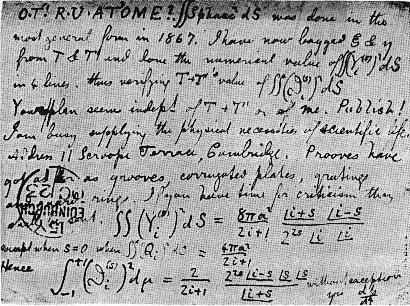 O.T'. R.U. AT 'OME? ∬ Spharc² dS was done in the
most general form in 1867. I have now bagged ξ & η
from T & T' and done the numerical value of ∬(Y_i^(s))² dS
in 4 lines. thus verifying T+T''s value of ∬(ϑ_i^(s))² dS
Your plan seems indept. of T + T' or of me. Publish!
I am busy supplying the physical necessities of scientific life
address 11 Scroope Terrace, Cambridge. Prooves have
got as far as grooves, corrugated plates, grating
rings. If you have time for criticism than
∬(Y_i^(s))² dS = 8πa²/(2i+1) · |i+s |i−s / 2^(2s) |i |i
except when S=0 when ∬(Q_i)² dS = 4πa²/(2i+1)
Hence
∫_{−1}^{+1} (ϑ_i^(s))² dμ = 2/(2i+1) · 2^(2s) |i−s |s |s / |i+s without exception
EDINBURGH